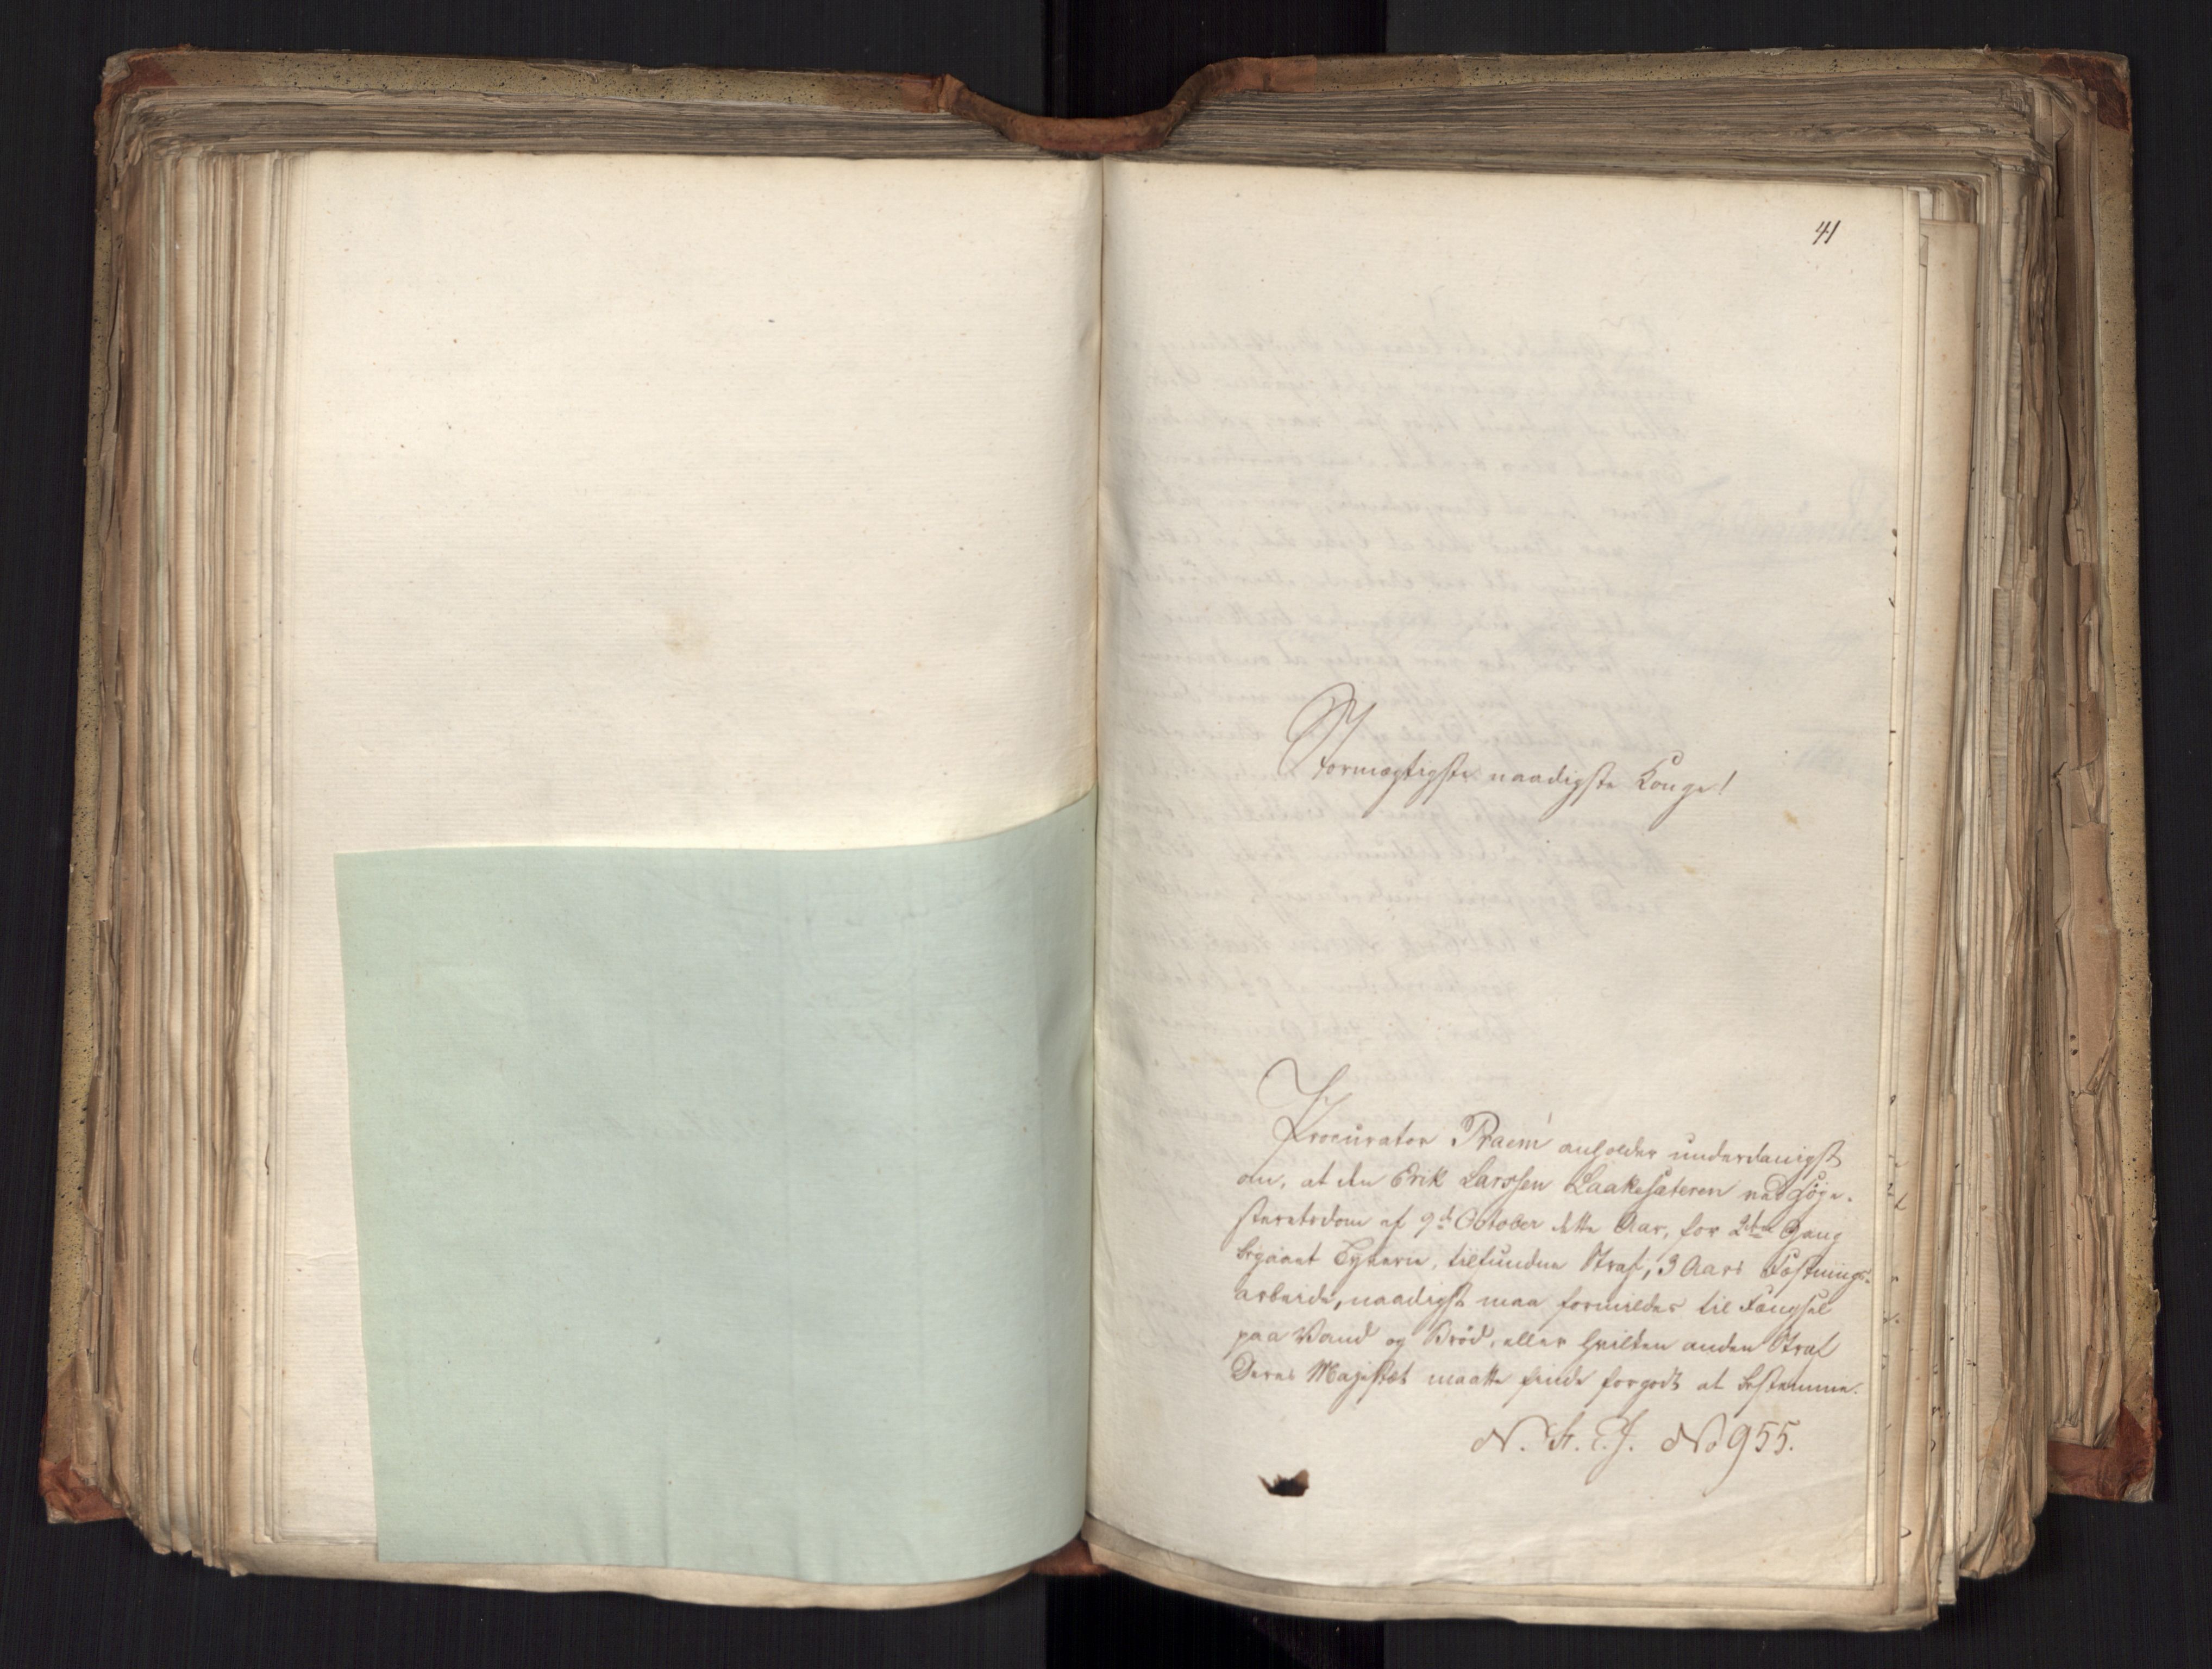 41
Stormægtigste naadigste Konge!
Procurator Praëm anholder underdanigst
om, at den Erik Larssen Laakesæteren ved Høie-
steretsdom af 9d October dette Aar, for 2den Gang
begaaet Tyverie, tilfundne Straf, 3 Aars Fæstnings-
arbeide, naadigst maa formildes til Fængsel
paa Vand og Brød, eller hvilken anden Straf
Deres Majestæt maatte finde forgodt at bestemme.
No 955.